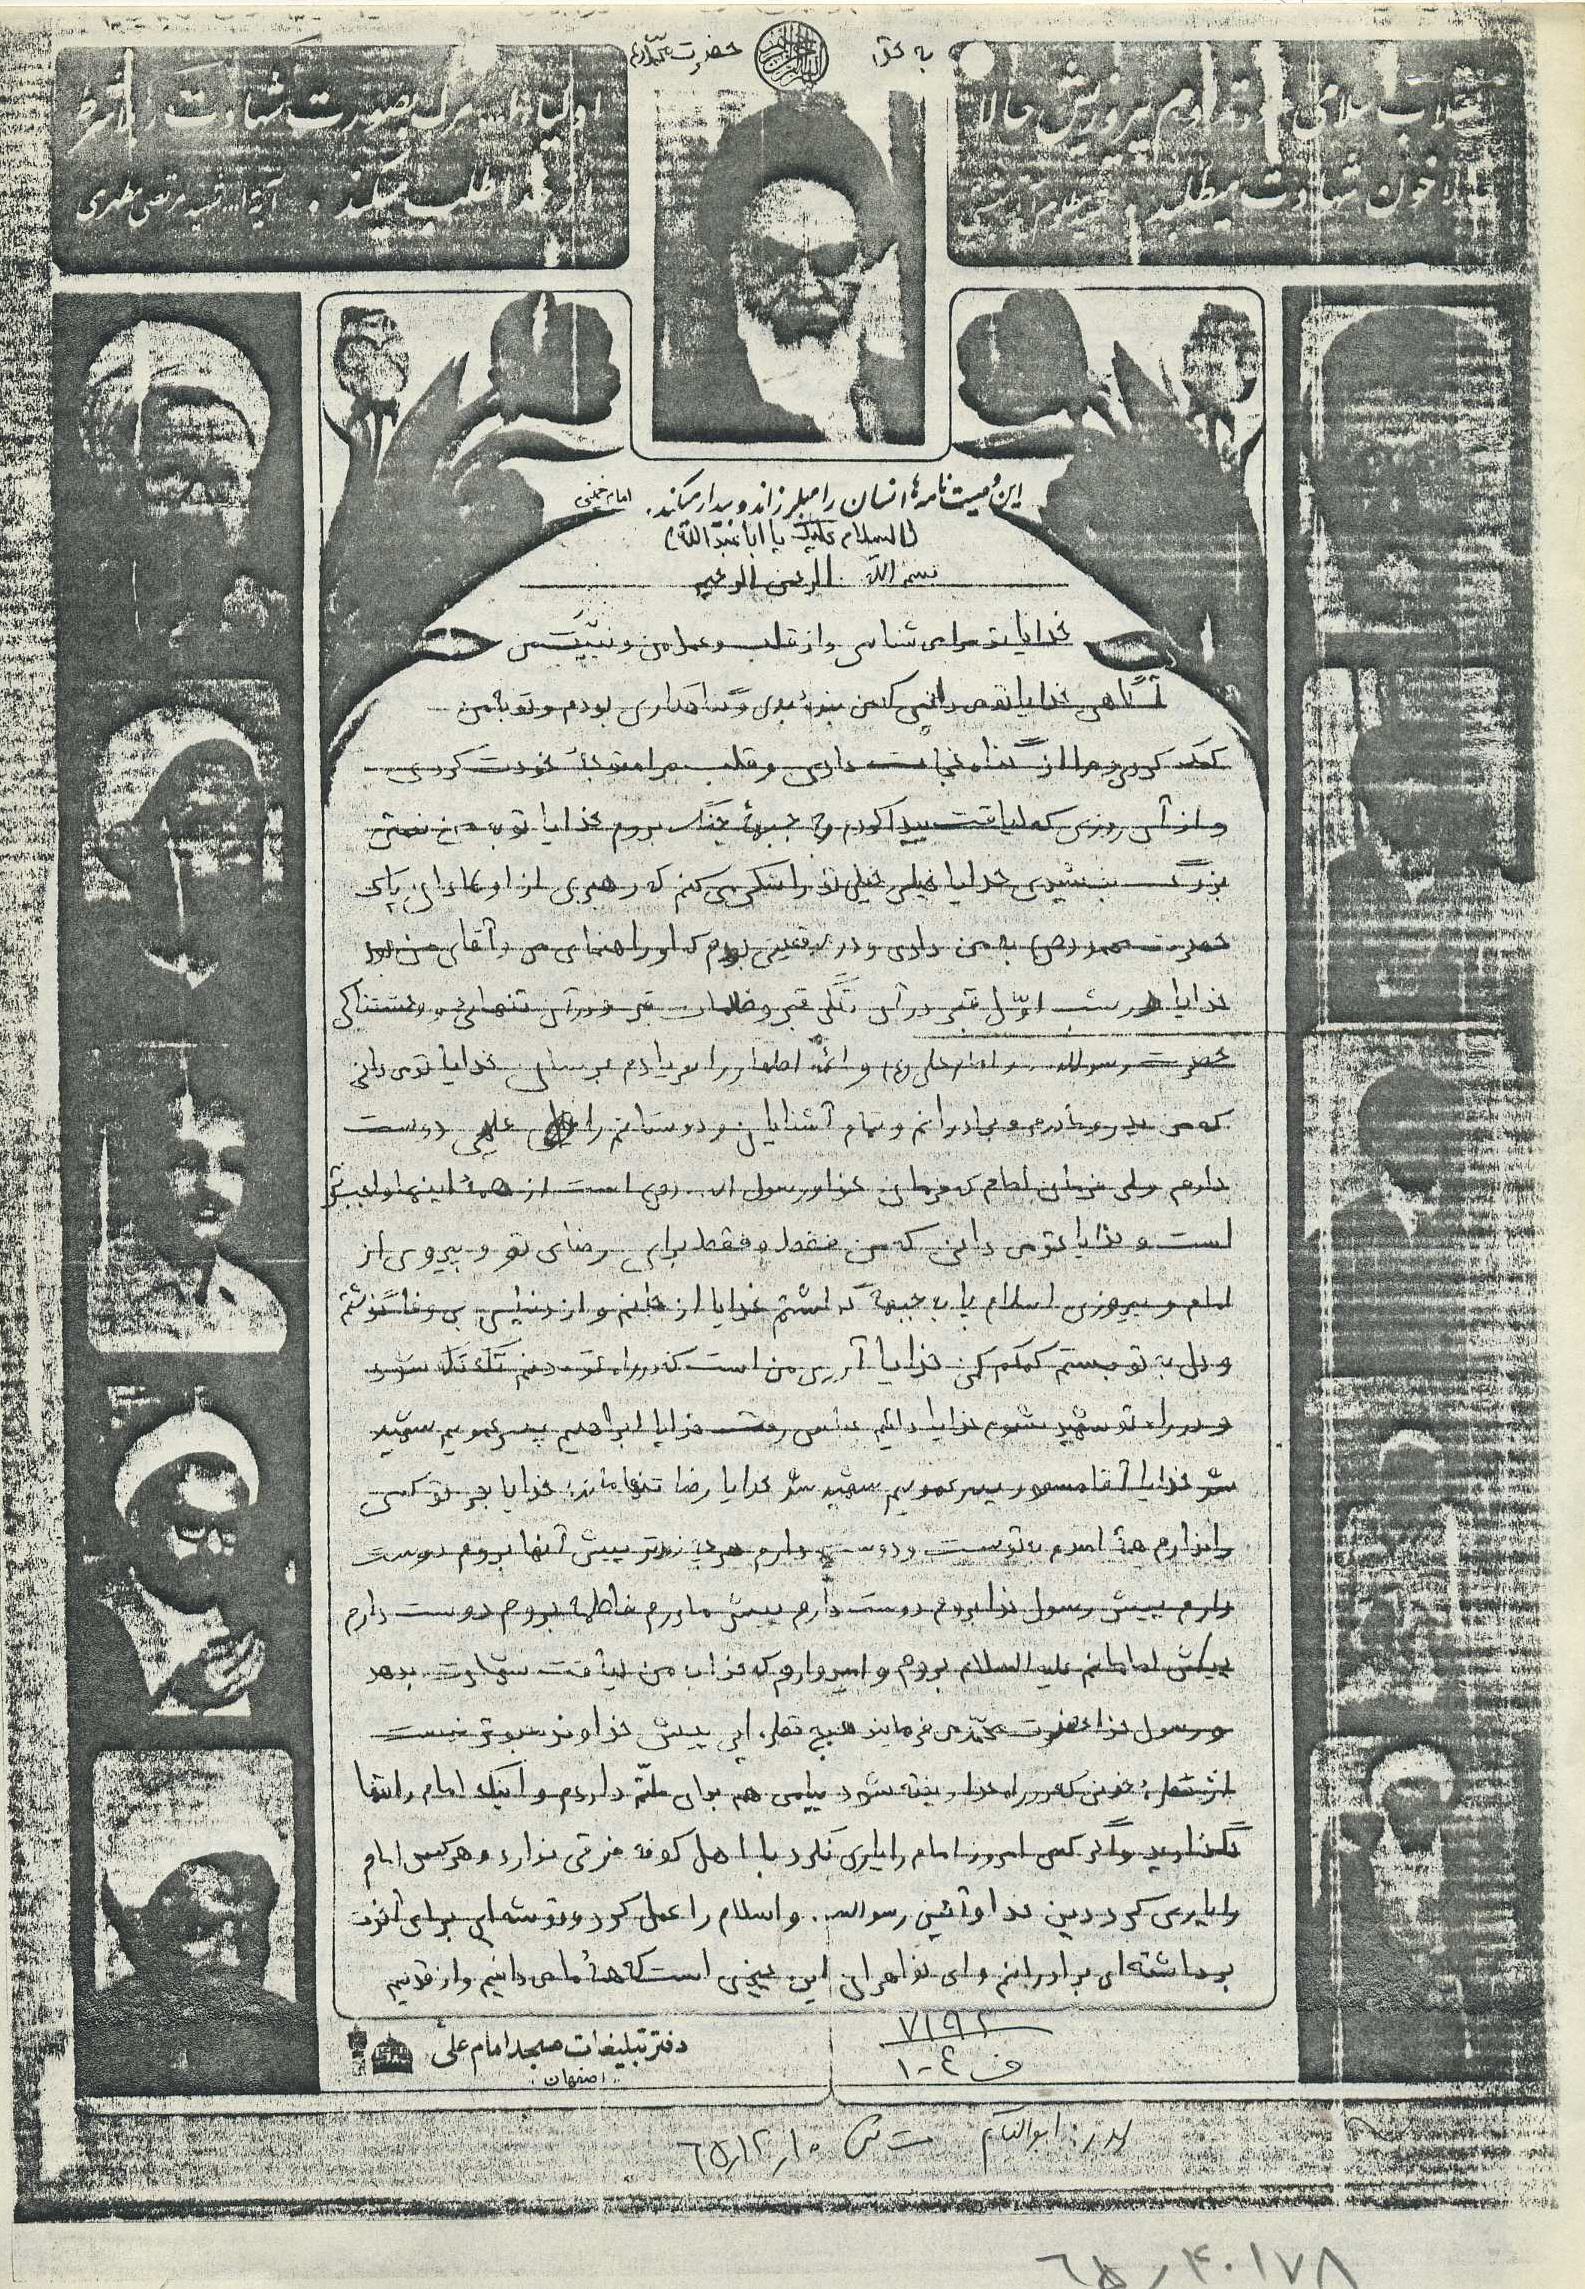 به حق حضرت محمد
اولیاء خدا مرگ بصورت شهادت را
از خدا طلب میکنند. آیة ا... شهید مرتضی مطهری
انقلاب اسلامی تداوم پیروزیش حالا
حالا خون شهادت میطلبد.
این وصیت نامه ها انسان را میلرزاند و بیدار میکند. امام خمینی
(السلام علیک یا ابا عبدالله)
بسم الله الرحمن الرحیم
خدایا تو مرا می شناسی و از قلب و عمل من و نیت من
آگاهی خدایا تو می دانی که من بنده بدی و گناهکاری بودم و تو به من
کمک کردی و مرا از گناه نجات دادی و قلب مرا متوجه خودت کردی
و از آن روزی که لیاقت پیدا کردم به جبهه جنگ بروم خدایا تو به من نعمتی
بزرگ بخشیدی خدایا خیلی خیلی تو را شکر می کنم که رهبری از اولادان پاک
حضرت محمد (ص) به من دادی و در بودم که او راهنمای من و آقای من بود
خدایا در شب اول قبر در آن تنگی قبر و ظلمات قبر و در آن تنهایی و وحشتناکی
حضرت رسول الله و امام علی (ع) و ائمه اطهار را به فریادم برسان خدایا تو می دانی
که من پدر و مادرم و برادرانم و تمام آشنایان و دوستانم را خیلی دوست
دارم ولی فرمان امام که فرمان خدا و رسول ا... (ص) است از همه اینها واجبتر
است و خدایا تو می دانی که من فقط و فقط برای رضای تو و پیروی از
امام و پیروزی اسلام پا به جبهه گذاشتم خدایا از جانم و از دنیای بی وفا گذشتم
و دل به تو بستم کمکم کن خدایا آرزوی من است که در راه تو بدنم تکه تکه شود
و در راه تو شهید بشوم خدایا دائیم عباس رفت خدایا ابراهیم پسر عمویم شهید
شد خدایا آقا مسعود پسر عمویم شهید شد خدایا رضا تنها مانده خدایا بجز تو کسی
را ندارم همه امیدم به توست و دوست دارم هر چه زودتر پیش آنها بروم دوست
دارم پیش رسول خدا بروم دوست دارم پیش مادرم فاطمه بروم دوست دارم
پیش امامانم علیه السلام بروم و امیدوارم که خدا به من لیاقت شهادت بدهد
و رسول خدا حضرت محمد می فرمایند هیچ قطره ای پیش خداوند محبوبتر نیست
از قطره خونی که در راه خدا ریخته شود پیامی هم برای ملتم دارم و اینکه امام را تنها
نگذارید و اگر کسی امروز امام را یاری نکرد با اهل کوفه فرقی ندارد و هر کس امام
را یاری کرد دین خدا و آئین رسول الله و اسلام را عمل کرده و توشه ای برای آخرت
برداشته ای برادرانم و ای خواهران این چیزی است که همه ما می دانیم و از قدیم
دفتر تبلیغات مسجد امام علی
اصفهان
۷۱۹۲
ف ۴-۱
پدر: ابوالقاسم ت ش ۶۵/۱۲/۱۰
۶۵ ر ۴۰۱۷۸